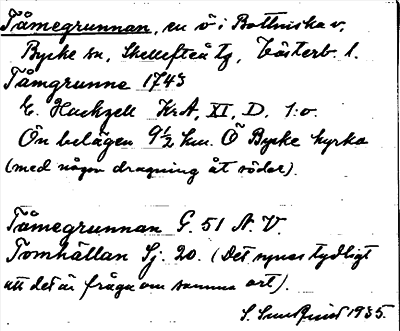 Tåmegrunnan, en ö i Bottniska v,
Byske sn, Skellefteå tg, Västerb. l.
Tåmgrunne 1743
E. Huckzell KrA, XI, D, 1:o.
Ön belägen 9½ km. Ö Byske kyrka
(med någon dragning åt söder).
Tåmegrunnan G. 51 N. V.
Tomhällan Sj. 20. (Det synes tydligt
att det är fråga om samma ort).
S. 1935.